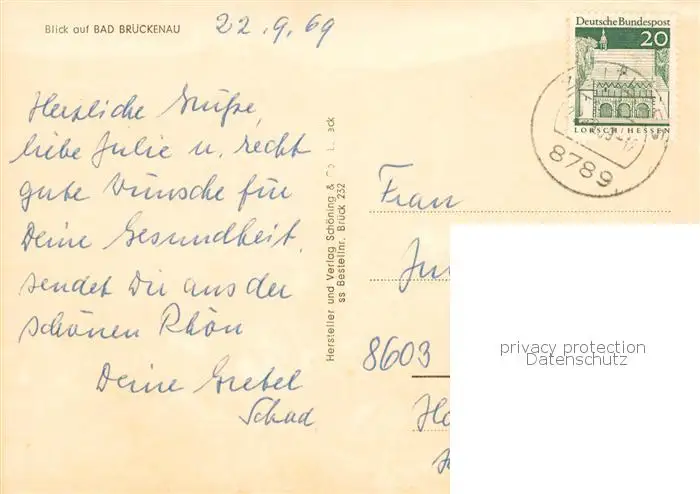 Blick auf BAD BRÜCKENAU
22.9.69
Herzliche Grüße,
liebe Julie u. recht
gute Wünsche für
Deine Gesundheit
sendet Dir aus der
schönen Rhön
Deine Gretel
Schad
Hersteller und Verlag Schöning & Co
ss Bestellnr. Brück 232
Deutsche Bundespost
20
LORSCH/HESSEN
8789
Frau
8603
privacy protection
Datenschutz